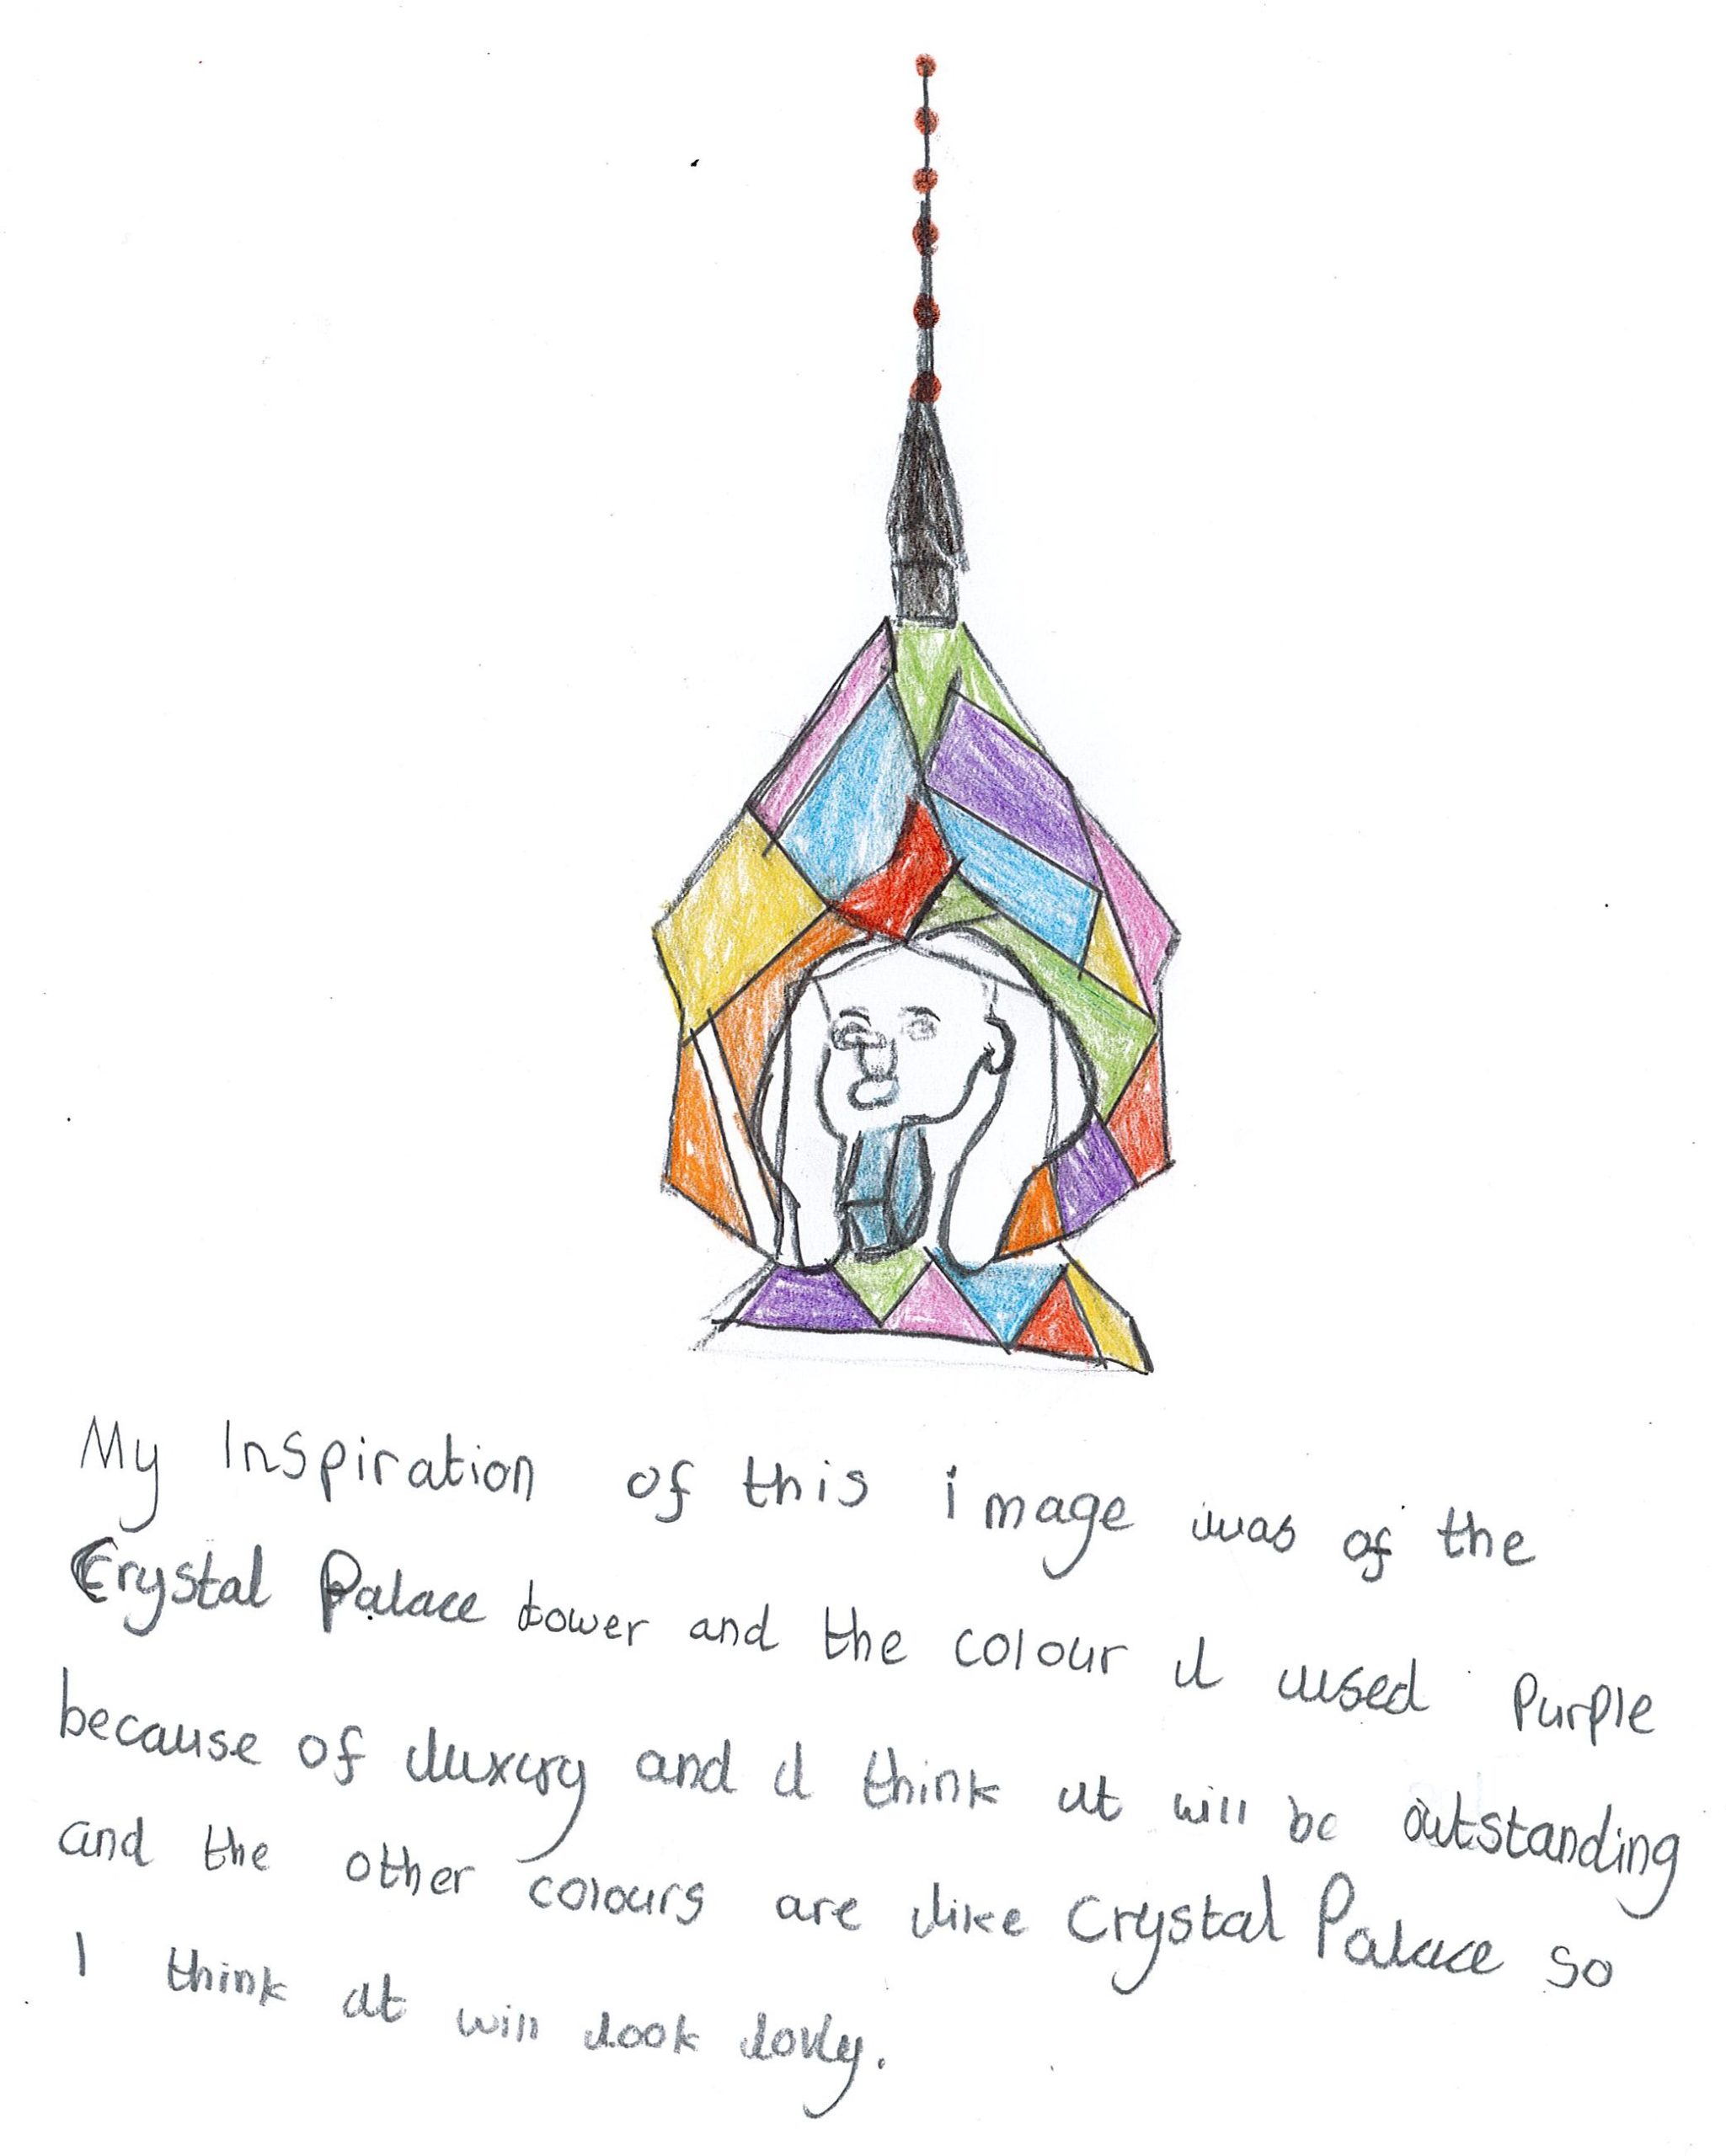 My Inspiration of this image was of the
Crystal Palace tower and the colour I used Purple
because of luxury and I think it will be outstanding
and the other colours are like Crystal Palace so
I think it will look lovly.